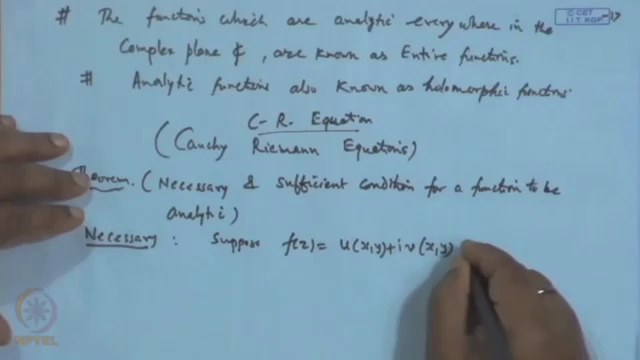 # The functions which are analytic everywhere in the
Complex plane ₵, are known as Entire functions.
# Analytic functions also known as holomorphic functions.
C-R. Equation
(Cauchy Riemann Equations)
Theorem. (Necessary & sufficient condition for a function to be
analytic)
Necessary : Suppose f(z) = u(x,y)+iv(x,y)
© CET
I.I.T. KGP
NPTEL